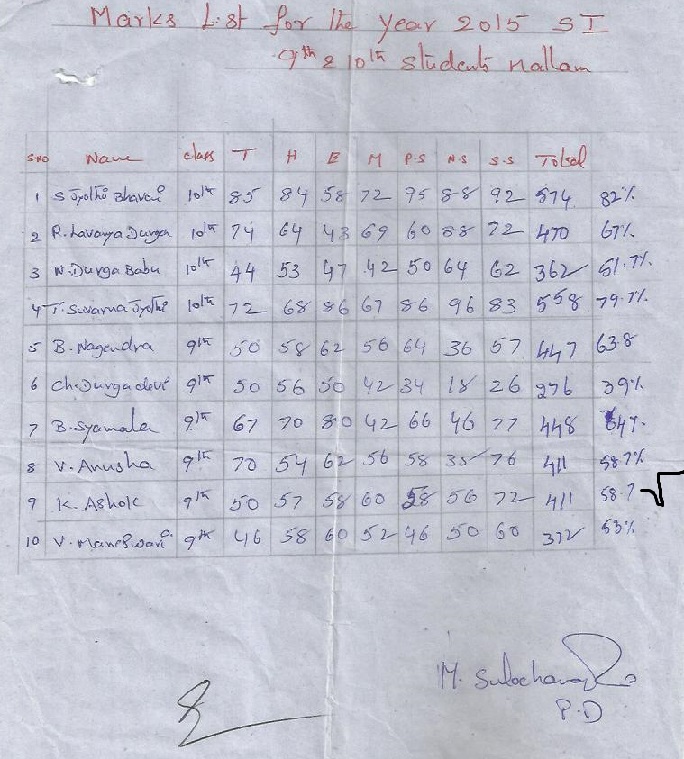 Marks List for the year 2015 SI
9th & 10th students nallam
S.No Name class T H E M P.S N.S S.S Total
1 S Jyothi Bhavani 10th 85 84 58 72 95 88 92 574 82%
2 P. Lavanya Durga 10th 74 64 43 69 60 88 72 470 67%
3 N. Durga Babu 10th 44 53 47 42 50 64 62 362 51.7%
4 T. Suvarna Jyothi 10th 72 68 86 67 86 96 83 558 79.7%
5 B. Nagendra 9th 50 58 62 56 64 36 57 447 63.8
6 Ch. Durga devi 9th 50 56 50 42 34 18 26 276 39%
7 B. Syamala 9th 67 70 80 42 66 46 77 448 64%
8 V. Anusha 9th 70 54 62 56 58 35 76 411 58.7%
9 K. Ashok 9th 50 57 58 60 58 56 72 411 58.7
10 V. Maneswari 9th 46 58 60 52 46 50 60 372 53%
M. Sulochana
P.D